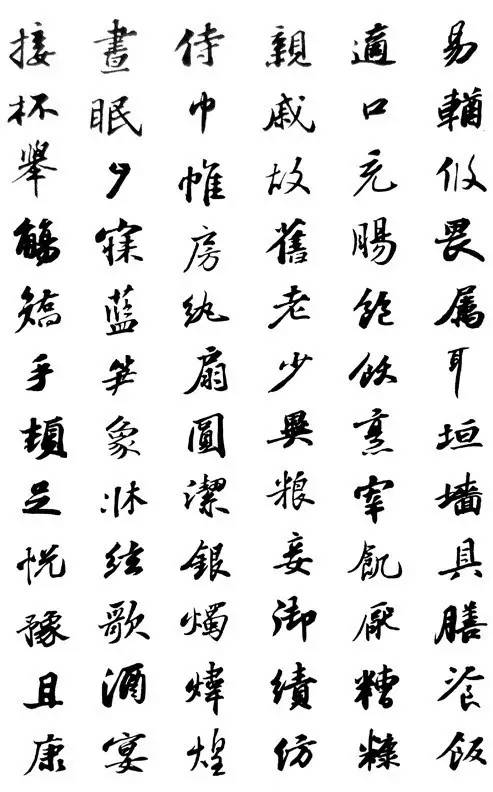 易輶攸畏屬耳垣墻具膳飡飯
適口充腸飽飫烹宰飢厭糟糠
親戚故舊老少異粮妾御績紡
侍巾帷房紈扇圓潔銀燭煒煌
晝眠夕寐藍笋象牀絃歌酒宴
接杯舉觴矯手頓足悅豫且康